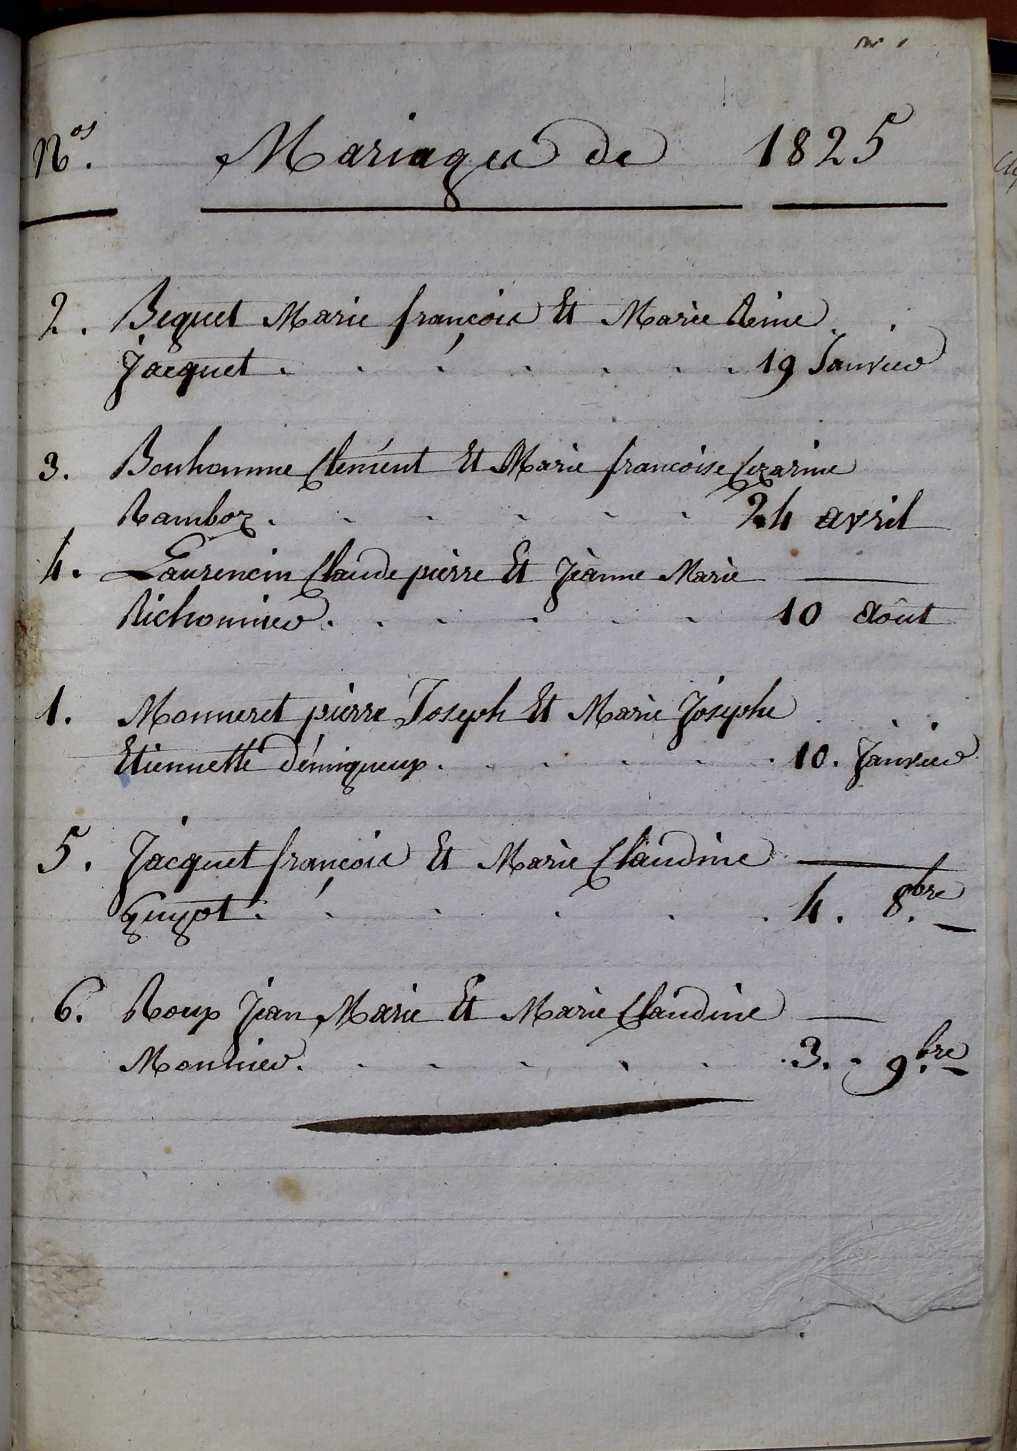 Nos. Mariages de 1825
2. Bequet Marie françois Et Marie Reine
Jacquet . . . . . . . 19 Janvier
3. Bonhomme Clément Et Marie francoise Cezarine
Ramboz . . . . . . 24 avril
4. Laurencin Claude pierre Et Jeanne Marie
Richonnier . . . . . . 10 août
1. Monneret pierre Joseph Et Marie Josephe
Etiennette Démigneux . . . . . . 10. Janvier
5. Jacquet françois Et Marie Claudine
Guyot . . . . . . 4. 8.bre
6. Roux Jean Marie Et Marie Claudine
Monnier . . . . . . 3. 9.bre